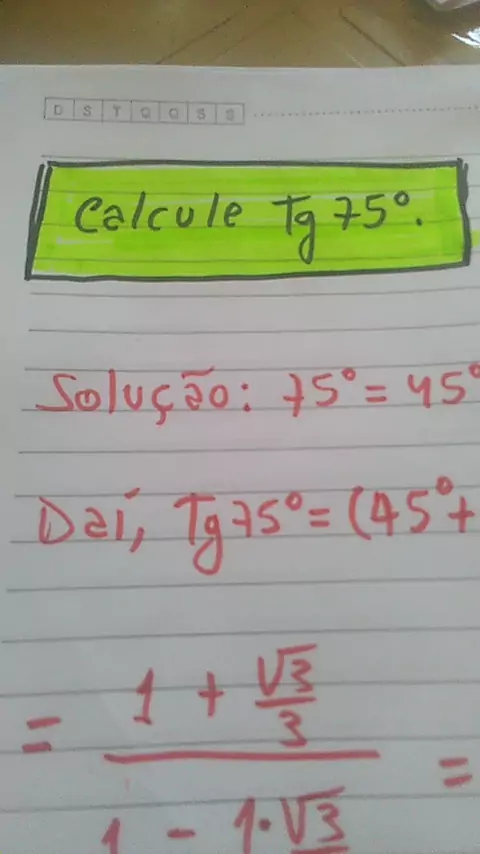 D S T Q Q S S
Calcule Tg 75°.
Solução: 75° = 45°
Daí, Tg 75° = (45° +
= 1 + √3/3
=
1 - 1·√3